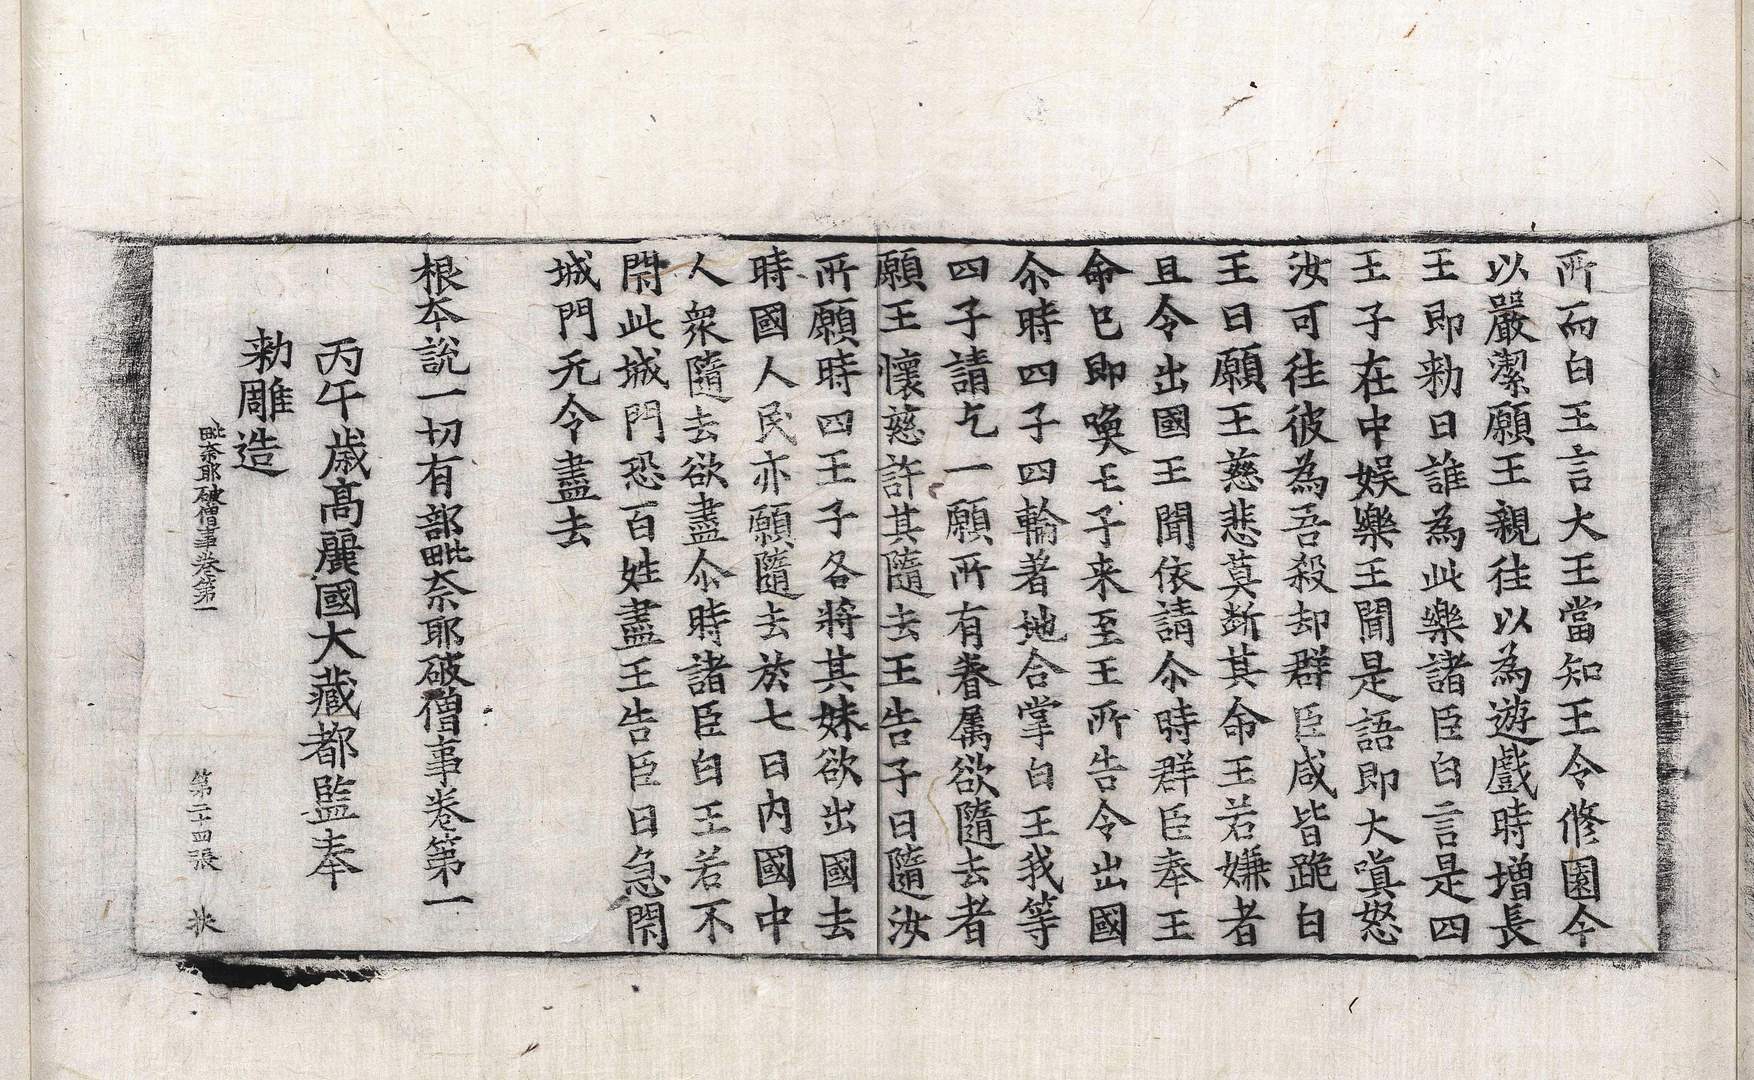 所而白王言大王當知王令修園今
以嚴潔願王親往以為遊戲時增長
王即勑曰誰為此樂諸臣白言是四
王子在中娛樂王聞是語即大嗔怒
汝可往彼為吾殺却群臣咸皆跪白
王曰願王慈悲莫斷其命王若嫌者
且令出國王聞依請尒時群臣奉王
命已即喚王子来至王所告令出國
尒時四子四輪著地合掌白王我等
四子請乞一願所有眷属欲隨去者
願王懷慈許其隨去王告子曰隨汝
所願時四王子各將其妹欲出國去
時國人民亦願隨去於七日內國中
人衆隨去欲盡尒時諸臣白王若不
閇此城門恐百姓盡王告臣曰急閇
城門无令盡去
根本說一切有部毗奈耶破僧事卷第一
丙午歲高麗國大藏都監奉
勑雕造
毗奈耶破僧事卷第一 第二十四張 挾